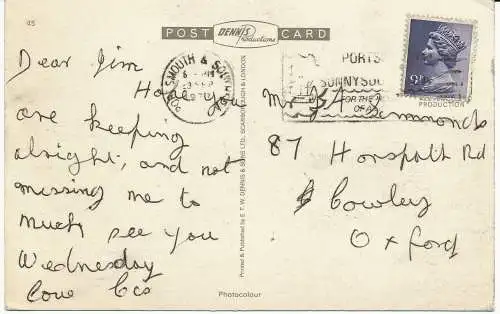 45
POST DENNIS Productions CARD
Dear Jim
Hope you
are keeping
alright, and not
missing me to
much see you
Wednesday
love
PORTSMOUTH &
PORTS
SUNNYSOU
FOR THE
OF
Mr Simmonds
87 Horspath Rd
Cowley
Oxford
PRODUCTION
Printed & Published by E. T. W. DENNIS & SONS LTD., SCARBOROUGH & LONDON
Photocolour